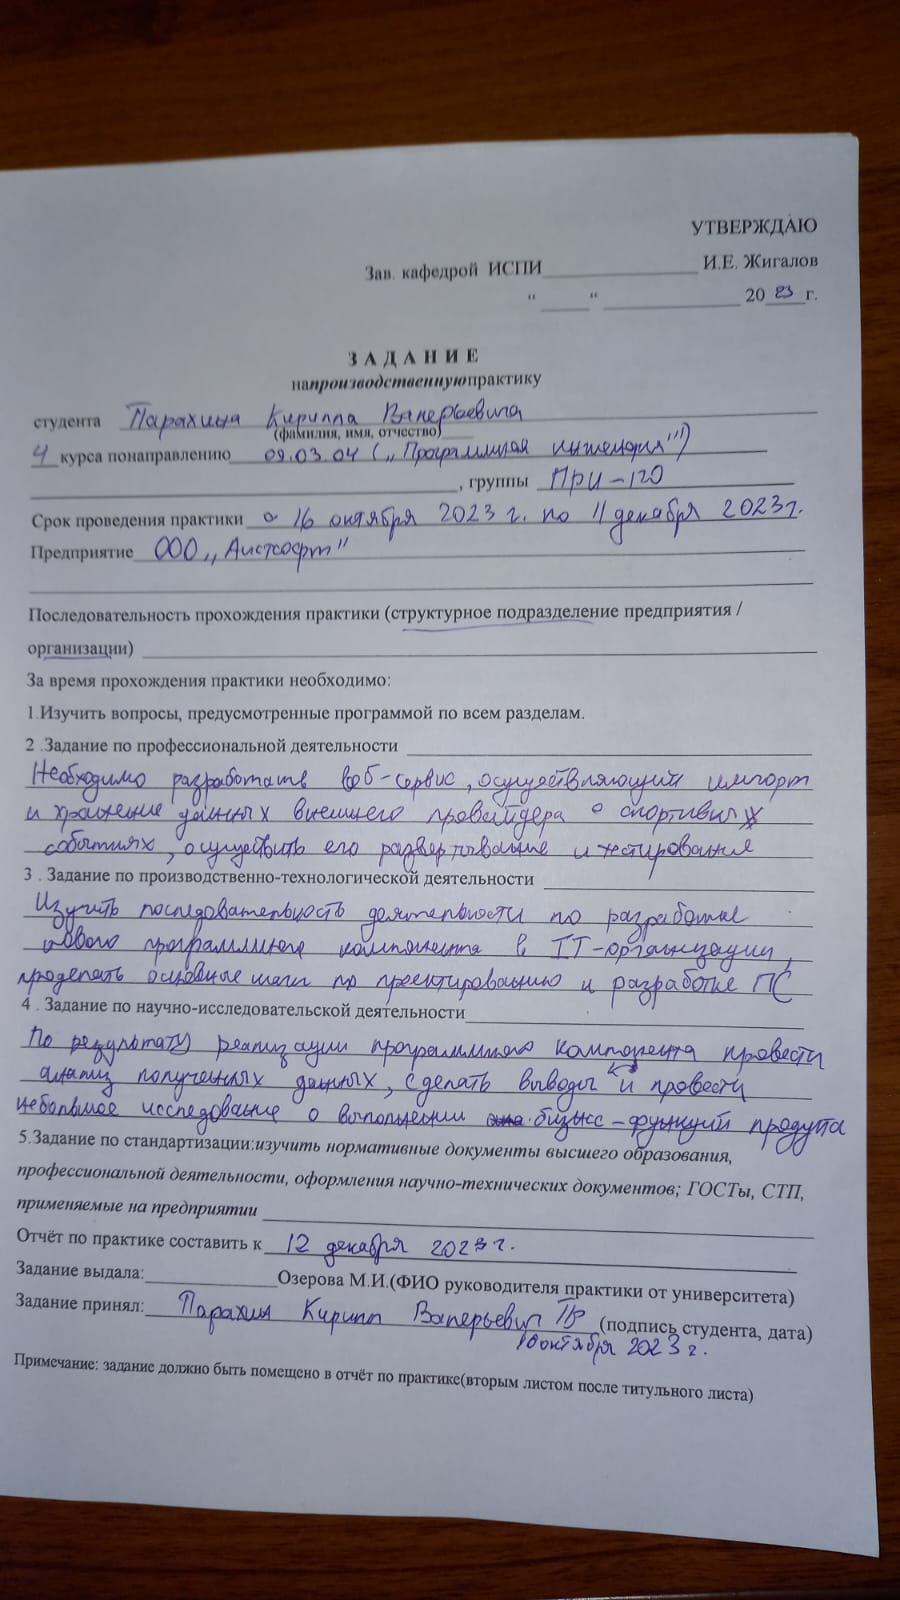 УТВЕРЖДАЮ
Зав. кафедрой ИСПИ________________ И.Е. Жигалов
“_____“ ______________ 2023г.
ЗАДАНИЕ
напроизводственнуюпрактику
студента Парахина Кирилла Валерьевича
(фамилия, имя, отчество)
4 курса понаправлению 09.03.04 („Программная инженерия”)
, группы При-120
Срок проведения практики с 16 октября 2023 г. по 11 декабря 2023г.
Предприятие ООО „Аистсофт”
Последовательность прохождения практики (структурное подразделение предприятия /
организации)
За время прохождения практики необходимо:
1.Изучить вопросы, предусмотренные программой по всем разделам.
2 .Задание по профессиональной деятельности
Необходимо разработать веб-сервис, осуществляющий импорт
и хранение данных внешнего провайдера о спортивных
событиях, осуществить его развертывание и тестирование
3 . Задание по производственно-технологической деятельности
Изучить последовательность деятельности по разработке
нового программного компонента в IT-организации,
проделать основные шаги по проектированию и разработке ПС
4 . Задание по научно-исследовательской деятельности
По результату реализации программного компонента провести
анализ полученных данных, сделать выводы и провести
небольшое исследование о выполнении бизнес-функций продукта
5.Задание по стандартизации:изучить нормативные документы высшего образования,
профессиональной деятельности, оформления научно-технических документов; ГОСТы, СТП,
применяемые на предприятии
Отчёт по практике составить к 12 декабря 2023 г.
Задание выдала:______________Озерова М.И.(ФИО руководителя практики от университета)
Задание принял: Парахин Кирилл Валерьевич (подпись студента, дата)
10 октября 2023 г.
Примечание: задание должно быть помещено в отчёт по практике(вторым листом после титульного листа)